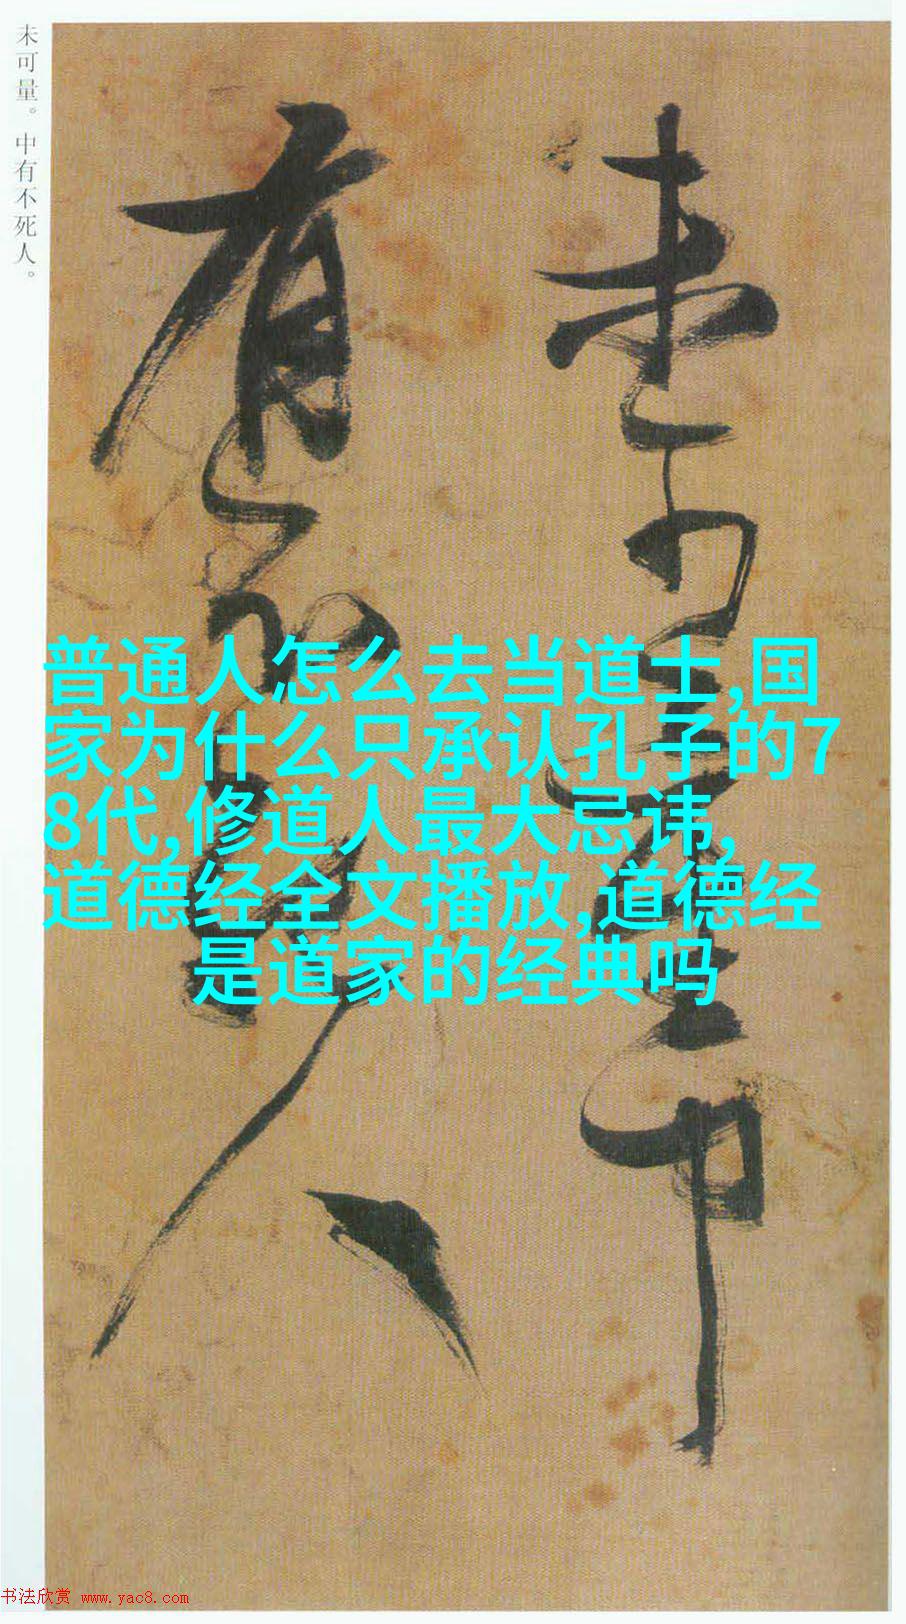 未可量。中有不死人。
未可量中
有不死人
普通人怎么去当道士,国
家为什么只承认孔子的7
8代,修道人最大忌讳,
道德经全文播放,道德经
是道家的经典吗
书法欣赏 www.yac8.com